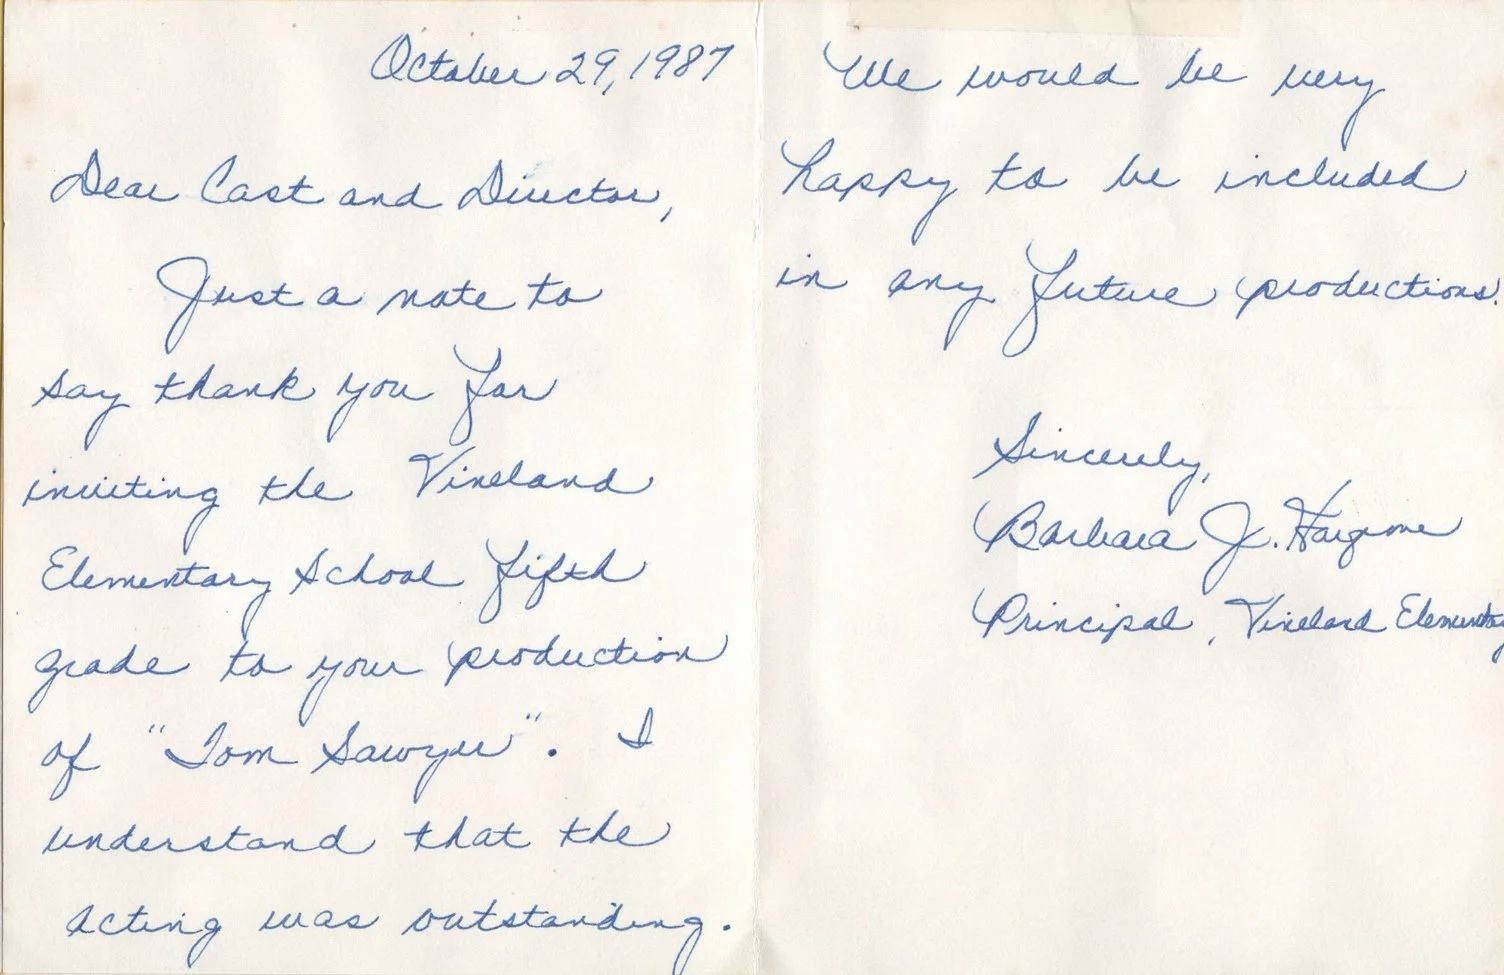 October 29, 1987
Dear Cast and Director,
Just a note to
say thank you for
inviting the Vineland
Elementary School fifth
grade to your production
of "Tom Sawyer". I
understand that the
acting was outstanding.
We would be very
happy to be included
in any future productions!
Sincerely,
Barbara J. Hargrove
Principal, Vineland Elementary